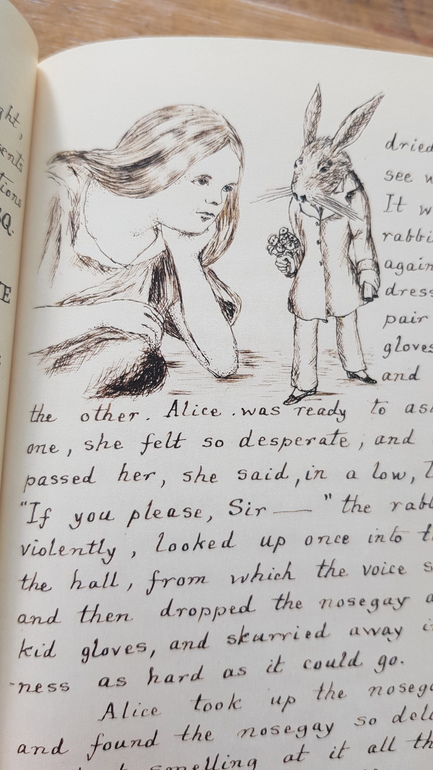 ght,
sents
tions
SQ.
TE
dried
see w
It w
rabbi
again
dress
pair
gloves
and
the other. Alice was ready to as
one, she felt so desperate, and
passed her, she said, in a low, t
"If you please, Sir — " the rabb
violently, looked up once into t
the hall, from which the voice s
and then dropped the nosegay a
kid gloves, and skurried away i
-ness as hard as it could go.
Alice took up the nosega
and found the nosegay so deli
smelling at it all th